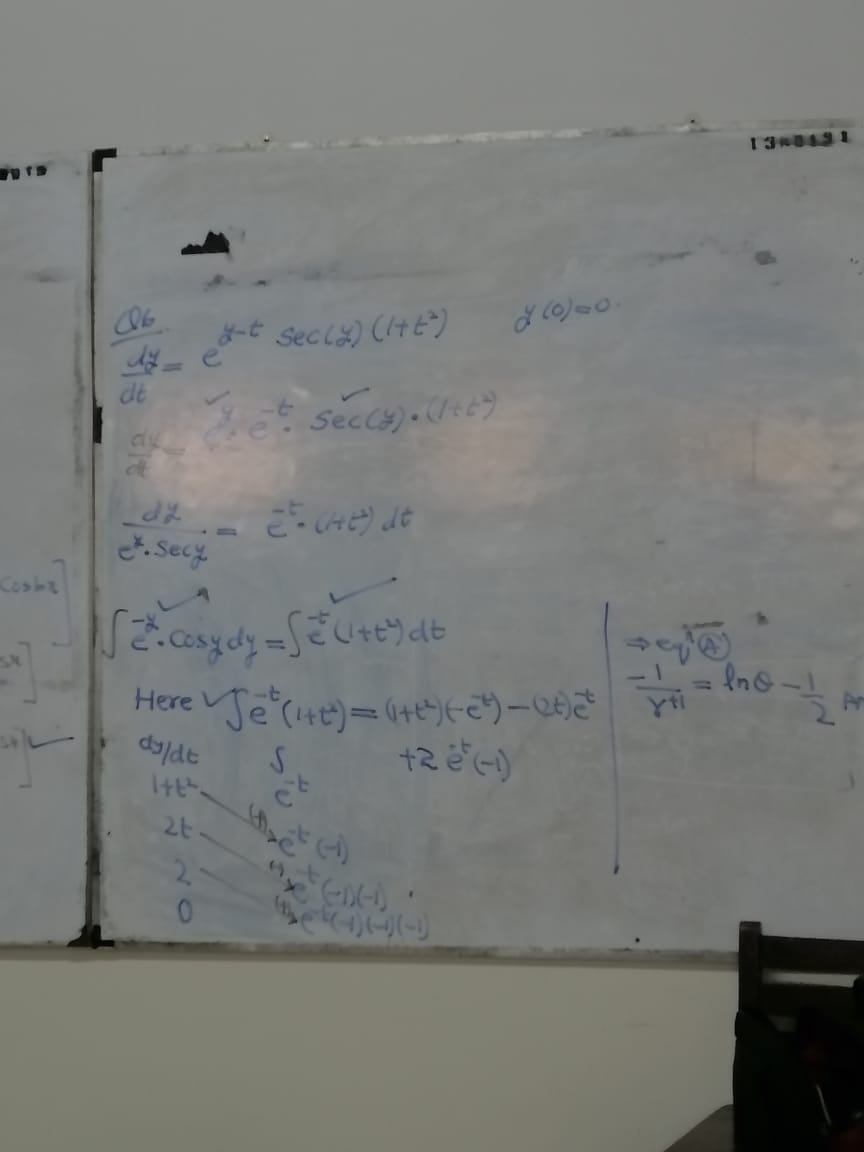 Q6
dy/dt = e^{y-t} Sec(y) (1+t²) y(0)=0.
dy/dt = e^y · e^{-t} · Sec(y) · (1+t²)
dy/(e^y · Secy) = e^{-t} · (1+t²) dt
∫ e^{-y} · Cosy dy = ∫ e^{-t} (1+t²) dt
Here ✓ ∫ e^{-t} (1+t²) = (1+t²)(-e^{-t}) - (2t) e^{-t}
+2 e^{-t} (-1)
dy/dt ∫
1+t² e^{-t}
2t (+) e^{-t} (-1)
2 (-) e^{-t} (-1)(-1)
0 (+) e^{-t} (-1)(-1)(-1)
⇒ eqⁿ (A)
-1/(r+1) = lnθ - 1/2
Cosbx]